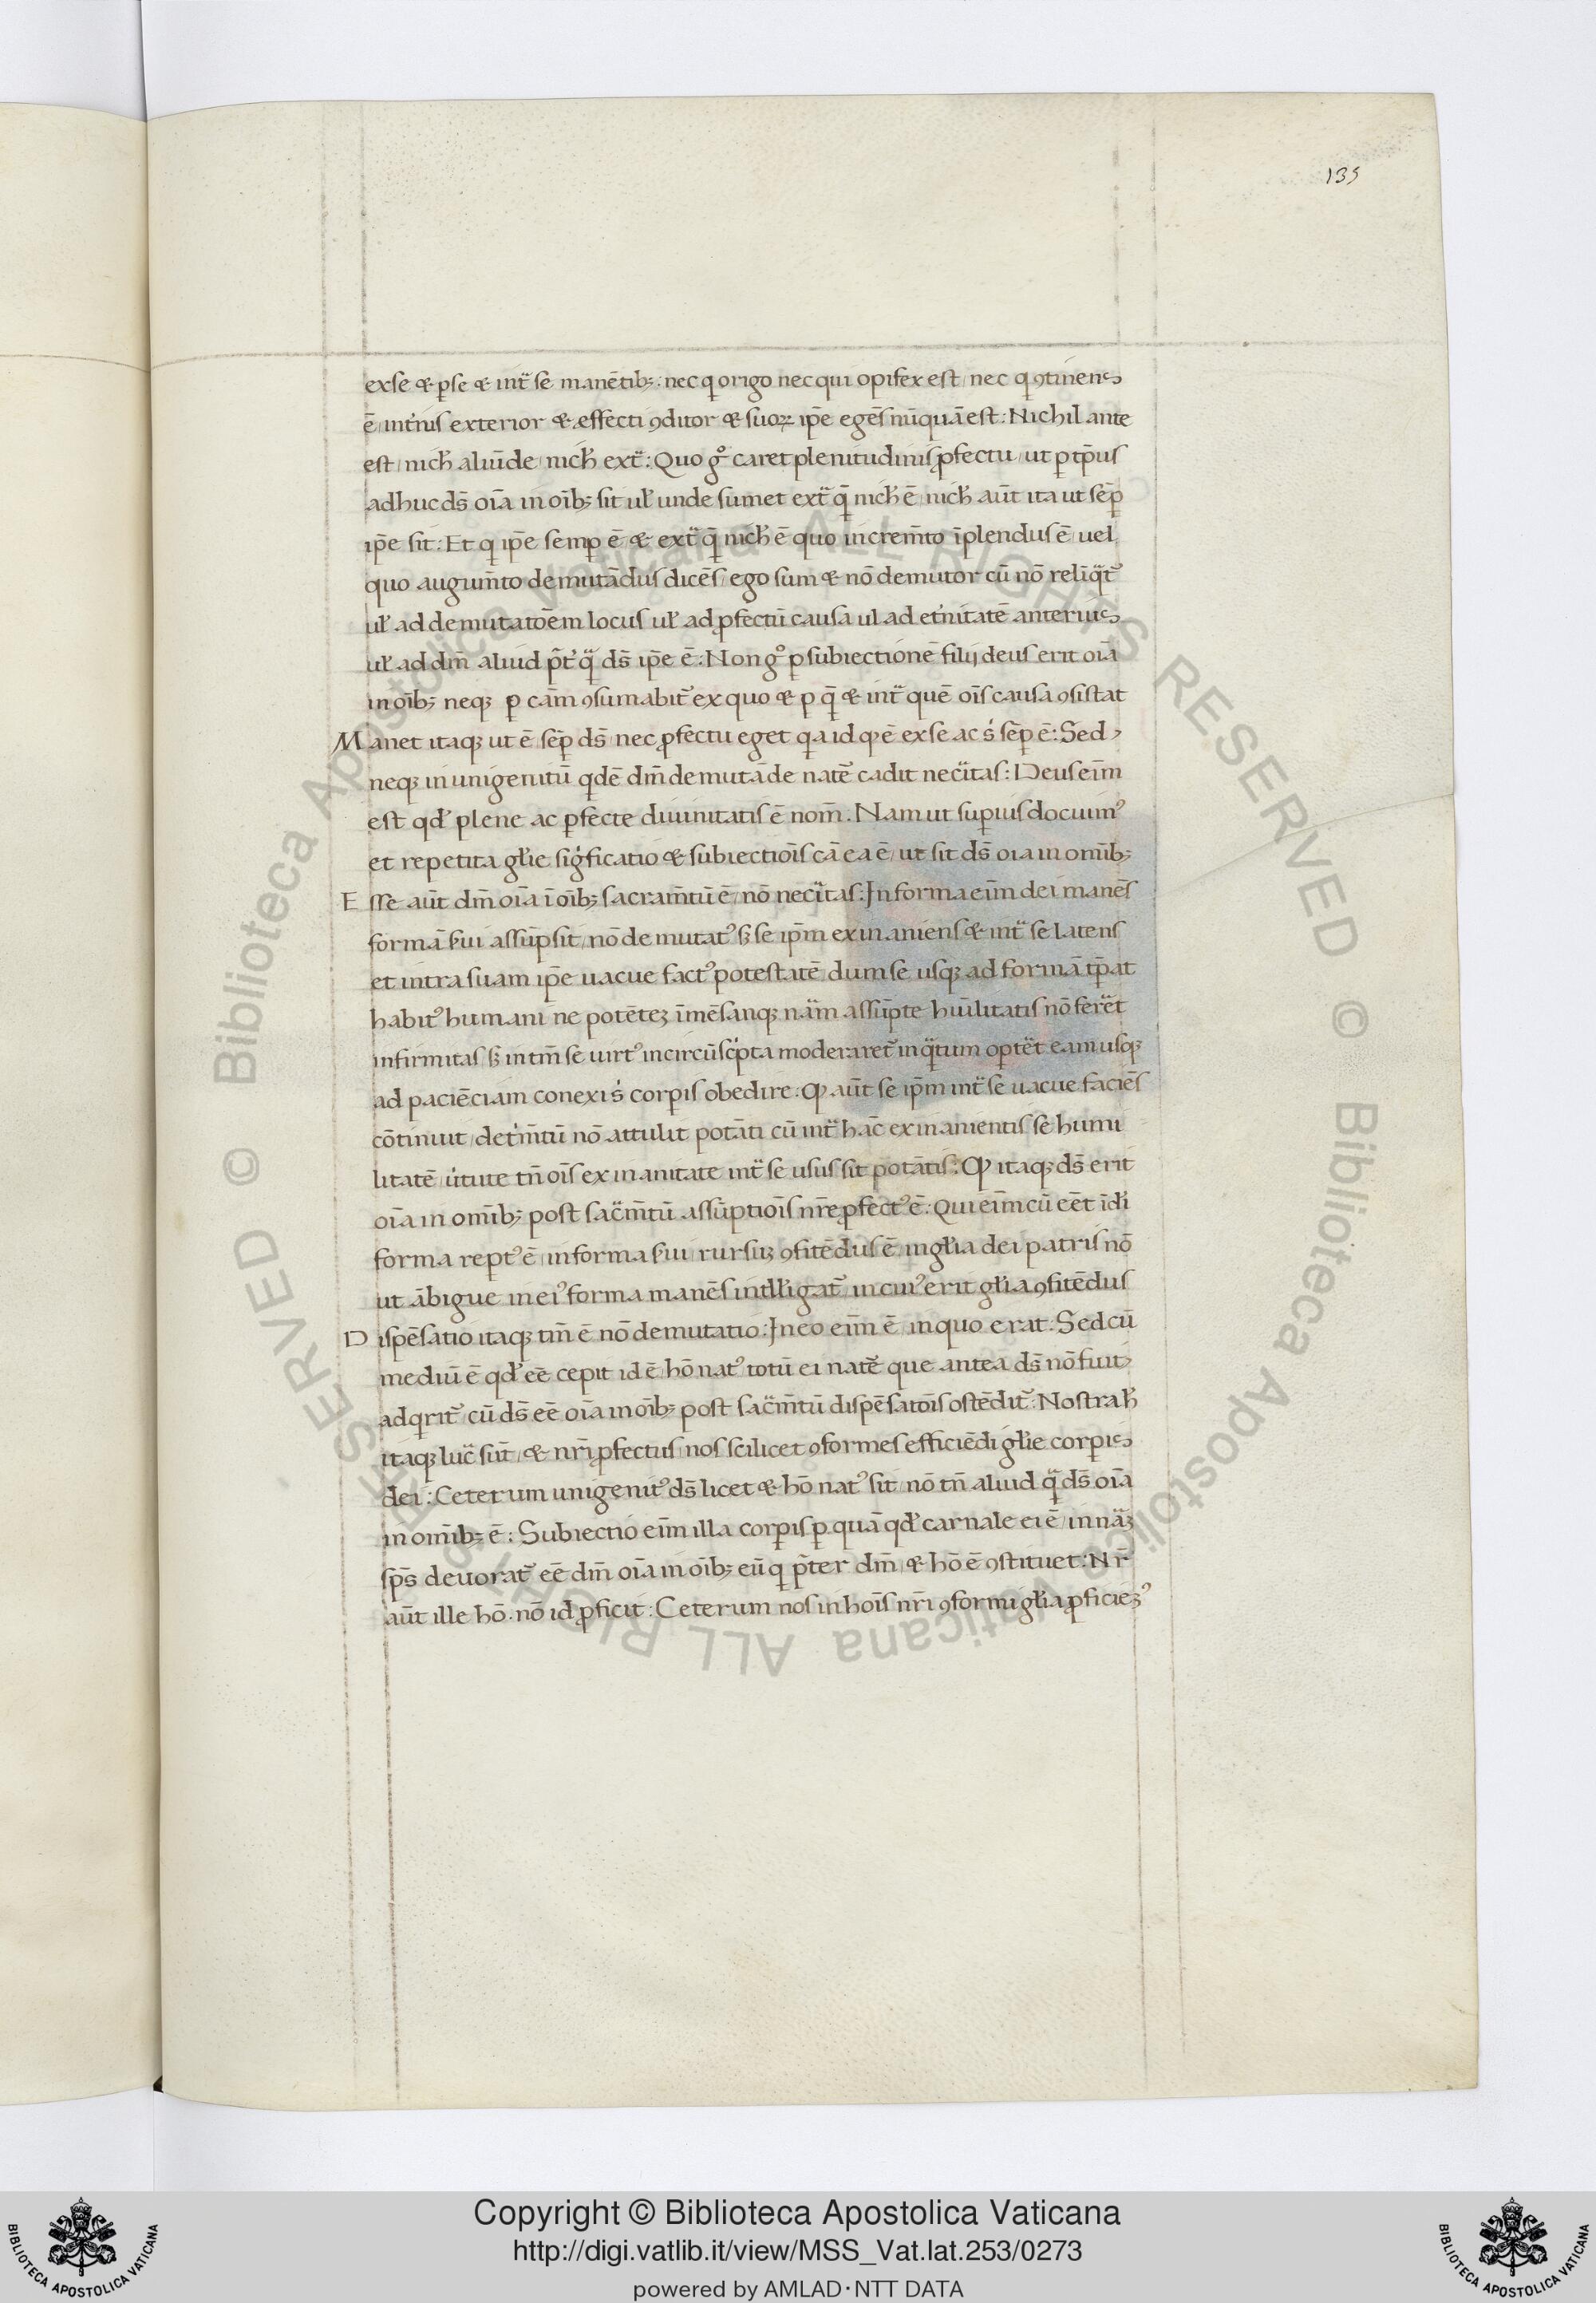 135
exse & ꝑse & int̃ se manētib; : nec q origo nec qui opifex est / nec q ꝯtinens
ē / int̾ius exterior & effecti ꝯditor & suoꝝ ip̄e egēs nūquā est : Nichil ante
est / nich̄ aliūde / nich̄ ext̃ : Quo gͦ caret plenitudinis ꝓfectu / ut ꝑ tp̄us
adhuc ds̄ oīa in oīb; sit ul̄ unde sumet ext̃ q̄ nich̄ ē / nich̄ aūt ita ut sēp
ip̄e sit : Et q ip̄e semꝑ ē & ext̃ q̄ nich̄ ē quo increm̄to īplendus ē / uel
quo augum̄to demutādus dicēs / ego sum & nō demutor cū nō relīq̃t᷑
ul̄ ad demutatōem locus ul̄ ad ꝓfectū causa ul ad et̾nitatē anterius
ul̄ ad dm̄ aliud p̄t̾ q̃ ds̄ ip̄e ē : Non gͦ ꝑ subiectionē filij deus erit oīa
in oīb; neqꝫ ꝑ cām ꝯsumabit᷑ ex quo & ꝑ q̄ & int̃ quē oīs causa ꝯsistat
Manet itaqꝫ ut ē sēp ds̄ / nec ꝓfectu eget qa id qͤ ē ex se ac s̾ sēp ē : Sed
neqꝫ in unigenitū qdē dm̄ demutāde nate᷑ cadit necītas : Deus eim̄
est qd̄ plene ac ꝑfecte diuinitatis ē nom̄ . Nam ut suꝑius docuim᷒
et repetita gl̄ie sigficatio & subiectiōis cā ea ē / ut sit ds̄ oia in omīb;
Esse aūt dm̄ oīa ī oīb; sacram̄tū ē / nō necītas : In forma eim̄ dei manēs
formā sui assūpsit / nō demutat᷒ sꝫ se ip̄m exinaniens & int̃ se latens
et intra suam ip̄e uacue fact᷒ potestatē / dum se usqꝫ ad formā tp̄at
habit᷒ humani ne potētez īmēsanqꝫ nām assūpte hūilitatis nō ferēt
infirmitas / sꝫ in tm̄ se uirt᷒ incircūscpta moderaret᷑ in q̃tum opt̄et eam usqꝫ
ad paciēciam conexi s̾ corꝑis obedire : Qͤ aūt se ip̄m int̃ se uacue faciēs
cōtinuit / det̾m̄tū nō attulit potāti cū int̃ hāc exinanientis se humi
litatē / ūtute tn̄ oīs exinanitate int̃ se usus sit potātis : Qͤ itaqꝫ ds̄ erit
oīa in omīb; post sac̃m̄tū assūptiōis nr̄e ꝓfect᷒ ē : Qui eim̄ cū eēt ī dei
forma reꝑt᷒ ē / in forma sui / rursuꝫ ꝯfitēdus ē in gl̄ia dei patris nō
ut ābigue in ei᷒ forma manēs intll̄igat᷑ in cui᷒ erit gl̄ia ꝯfitēdus
Dispēsatio itaqꝫ tm̄ ē nō demutatio : In eo eim̄ ē in quo erat : Sed cū
mediū ē qd̄ eē cepit id ē hō nat᷒ totū ei nate᷑ que antea ds̄ nō fuit
adqrit᷑ / cū ds̄ eē oīa in oīb; post sac̃m̄tū dispēsatōis ostēdit᷑ : Nostra h̄
itaqꝫ luc̃ sūt / & nr̄i ꝓfectus / nos scilicet ꝯformes efficiēdi gl̄ie corꝑis
dei : Ceterum unigenit᷒ ds̄ licet & hō nat᷒ sit / nō tn̄ aliud q̃ ds̄ oīa
in omīb; ē : Subiectio eim̄ illa corꝑis ꝑ quā qd̄ carnale ei ē / in nãꝫ
sp̄s deuorat᷑ eē dm̄ oīa in oīb; eū q p̄ter dm̄ & hō ē ꝯstituet : Nr̄
aūt ille hō . nō id ꝓficit : Ceterum nos in hōis nr̄i ꝯformi gl̄ia ꝓficiez᷒
© Biblioteca Apostolica Vaticana ALL RIGHTS RESERVED © Biblioteca Apostolica Vaticana ALL RIGHTS RESERVED
Copyright © Biblioteca Apostolica Vaticana
http://digi.vatlib.it/view/MSS_Vat.lat.253/0273
powered by AMLAD·NTT DATA
BIBLIOTECA APOSTOLICA VATICANA
BIBLIOTECA APOSTOLICA VATICANA